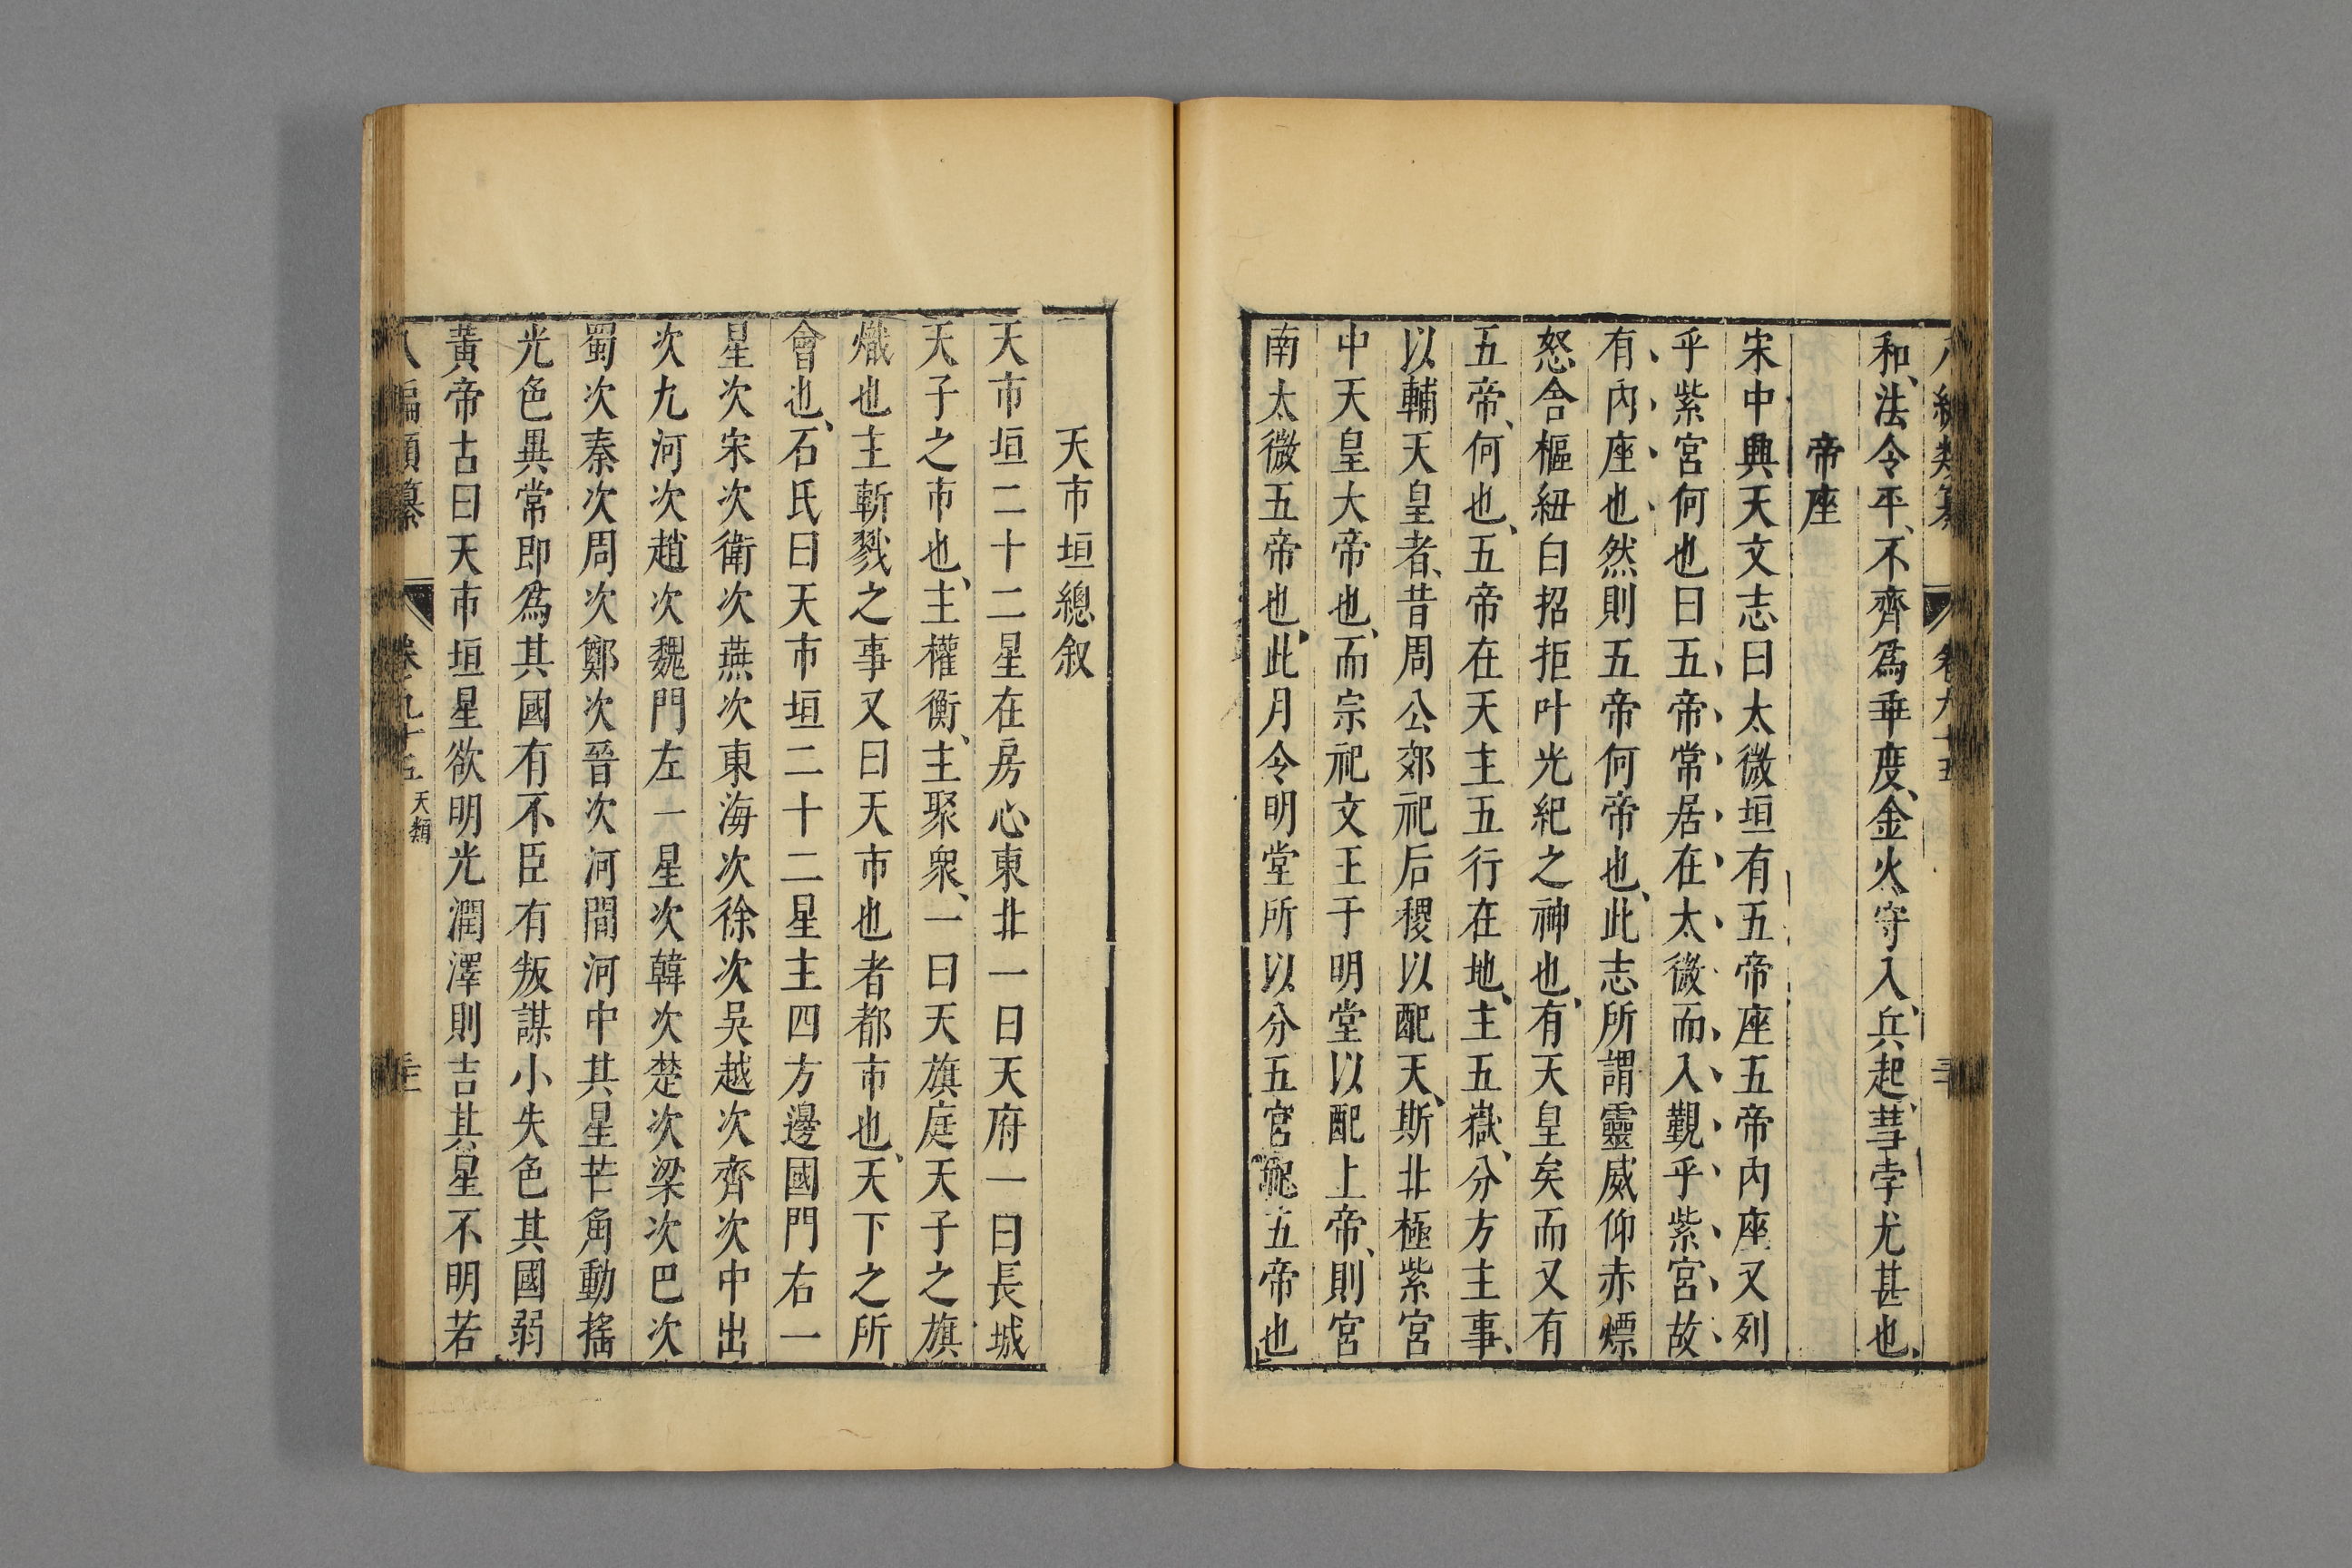 和、法令平、不齊爲乖度、金火守入、兵起、彗孛尤甚也、
帝座
宋中興天文志曰太微垣有五帝座五帝內座又列
乎紫宮何也曰五帝常居在太微而入覲乎紫宮故
有內座也然則五帝何帝也、此志所謂靈威仰赤熛
怒含樞紐白招拒叶光紀之神也、有天皇矣而又有
五帝、何也、五帝在天主五行在地、主五嶽、分方主事、
以輔天皇者、昔周公郊祀后稷以配天、斯北極紫宮
中天皇大帝也、而宗祀文王于明堂以配上帝、則宮
南太微五帝也、此月令明堂所以分五宮祀五帝也
天市垣總叙
天市垣二十二星在房心東北一曰天府一曰長城
天子之市也、主權衡、主聚衆、一曰天旗庭天子之旗
熾也主斬戮之事又曰天市也者都市也、天下之所
會也、石氏曰天市垣二十二星主四方邊國門右一
星次宋次衛次燕次東海次徐次吳越次齊次中出
次九河次趙次魏門左一星次韓次楚次梁次巴次
蜀次秦次周次鄭次晉次河間河中其星芒角動搖
光色異常即爲其國有不臣有叛謀小失色其國弱
黃帝古曰天市垣星欲明光潤澤則吉其星不明若
八編類纂 卷之九十五 天類